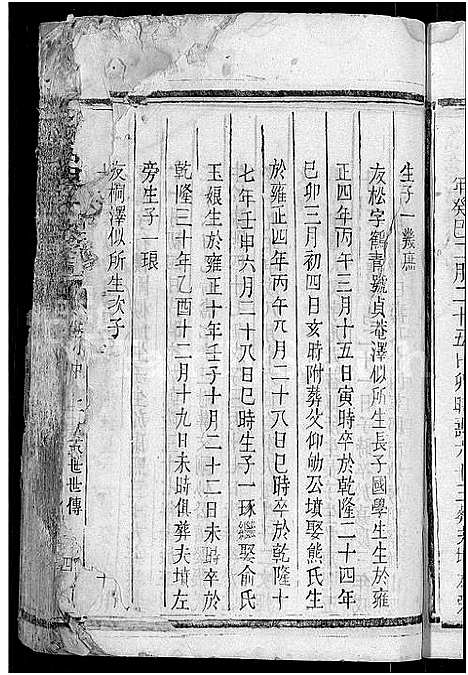 年癸巳二月二十五日卯時
生子一幾庸
友松字鶴青號貞菴澤似所生長子國學生生於雍
正四年丙午三月十五日寅時卒於乾隆二十四年
己卯三月初四日亥時附葬父仰劬公墳娶熊氏生
於雍正四年丙午六月二十八日巳時卒於乾隆十
七年壬申六月二十八日巳時生子一琢繼娶俞氏
玉娘生於雍正十年壬子十月二十二日未時卒於
乾隆三十年乙酉十二月十九日未時俱葬夫墳左
旁生子一琅
友桐澤似所生次子
世世傳